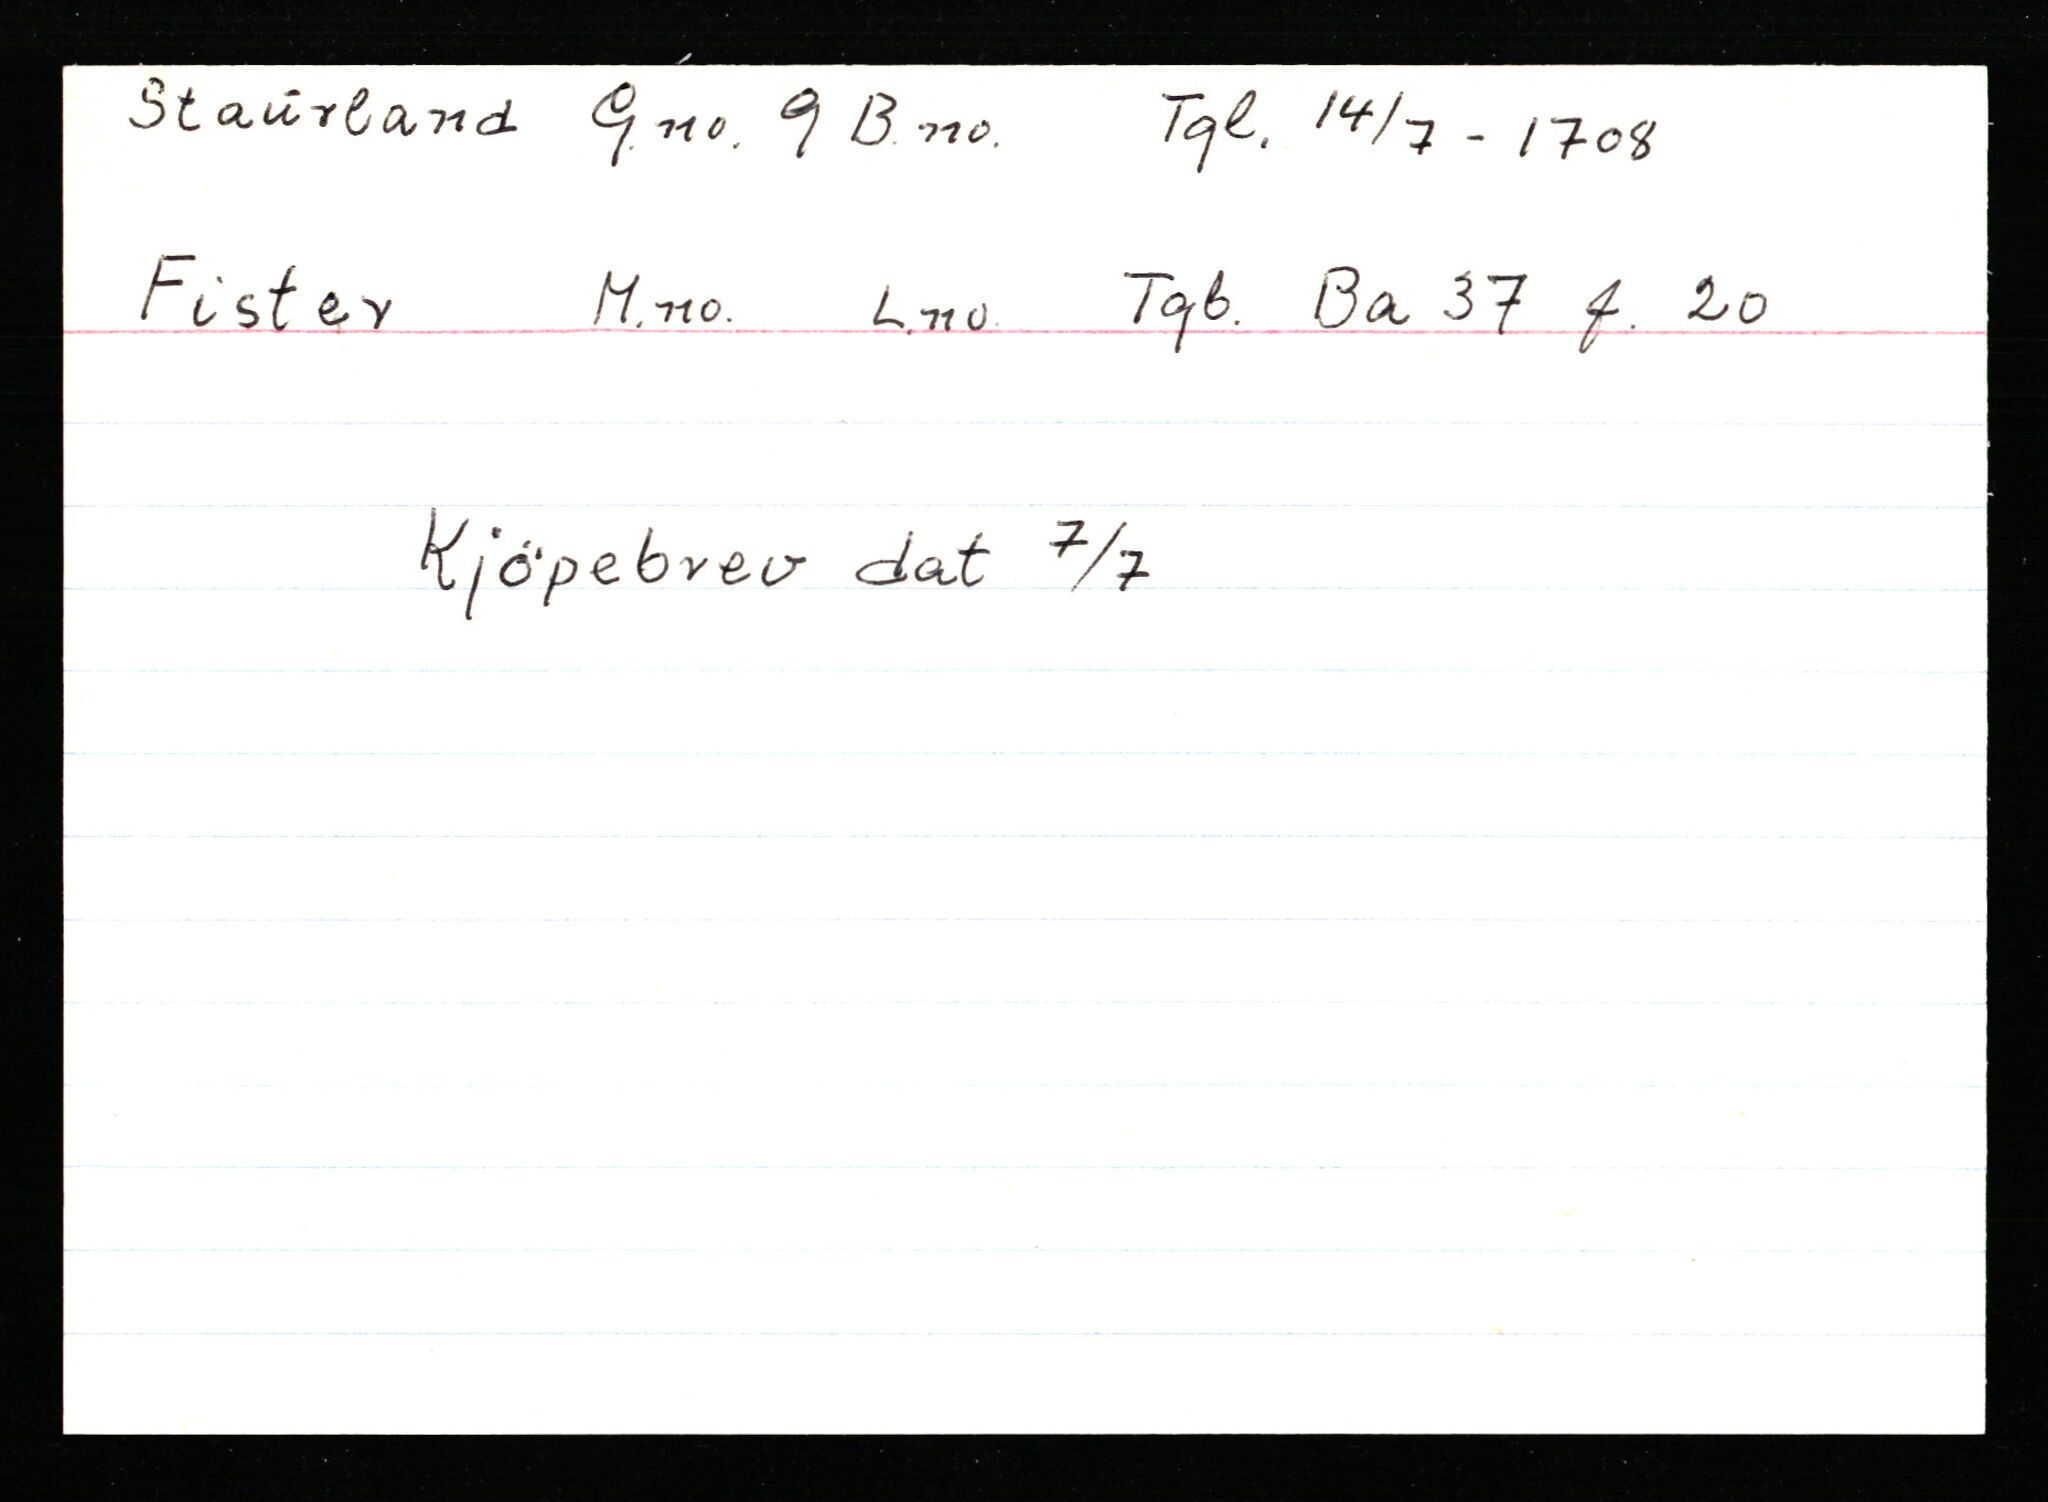 Staurland G.no. 9 B.no. Tgl. 14/7 - 1708
Fister M.no. L.no. Tgb. Ba 37 f. 20
Kjöpebrev dat 7/7